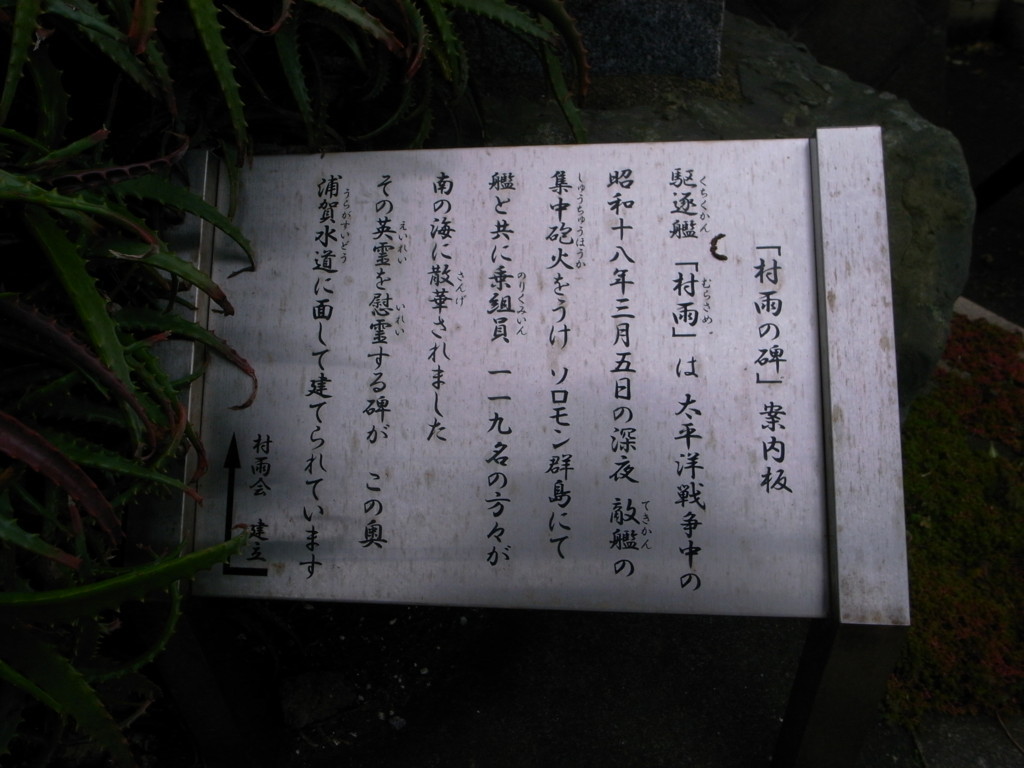 「村雨の碑」案内板
駆逐艦「村雨」は太平洋戦争中の
くちくかん
むらさめ
昭和十八年三月五日の深夜 敵艦の
てきかん
集中砲火をうけ ソロモン群島にて
しゅうちゅうほうか
艦と共に乗組員 一一九名の方々が
のりくみいん
南の海に散華されました
さんげ
その英霊を慰霊する碑が この奥
えいれい
いれい
浦賀水道に面して建てられています
うらがすいどう
村雨会 建立